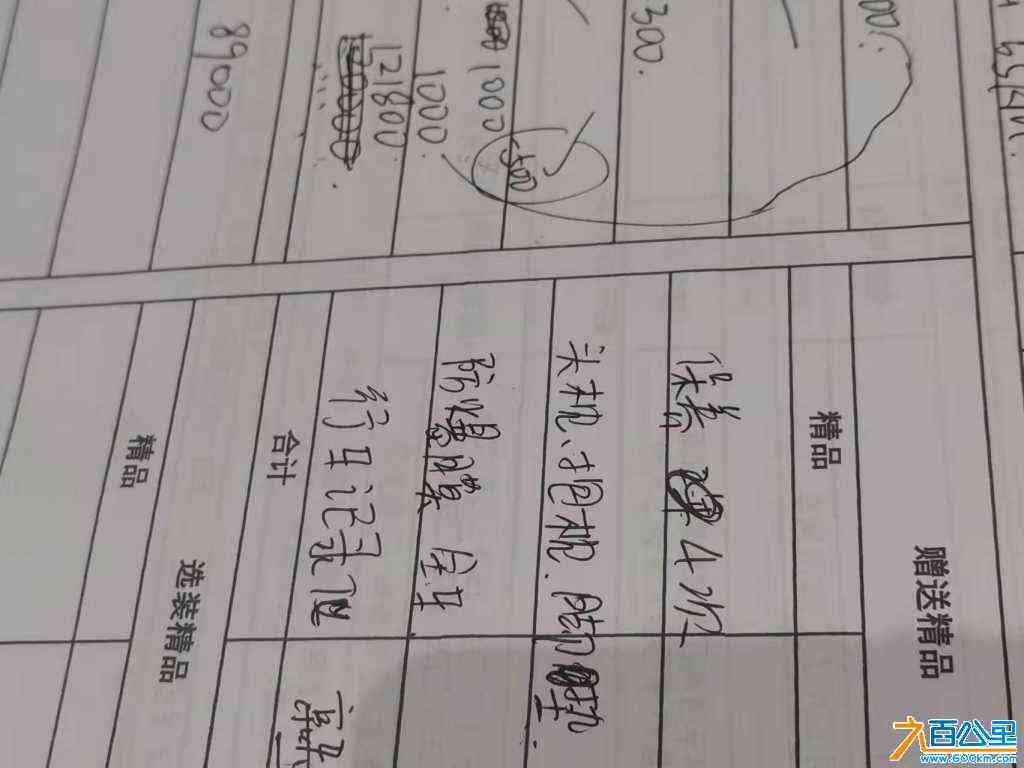 赠送精品
精品
300.
保养 4次
头枕、抱枕.脚垫.
-500
防爆膜 全车
1000.
行车记录仪
121800
合计
选装精品
89000
精品
九百公里
www.600km.com